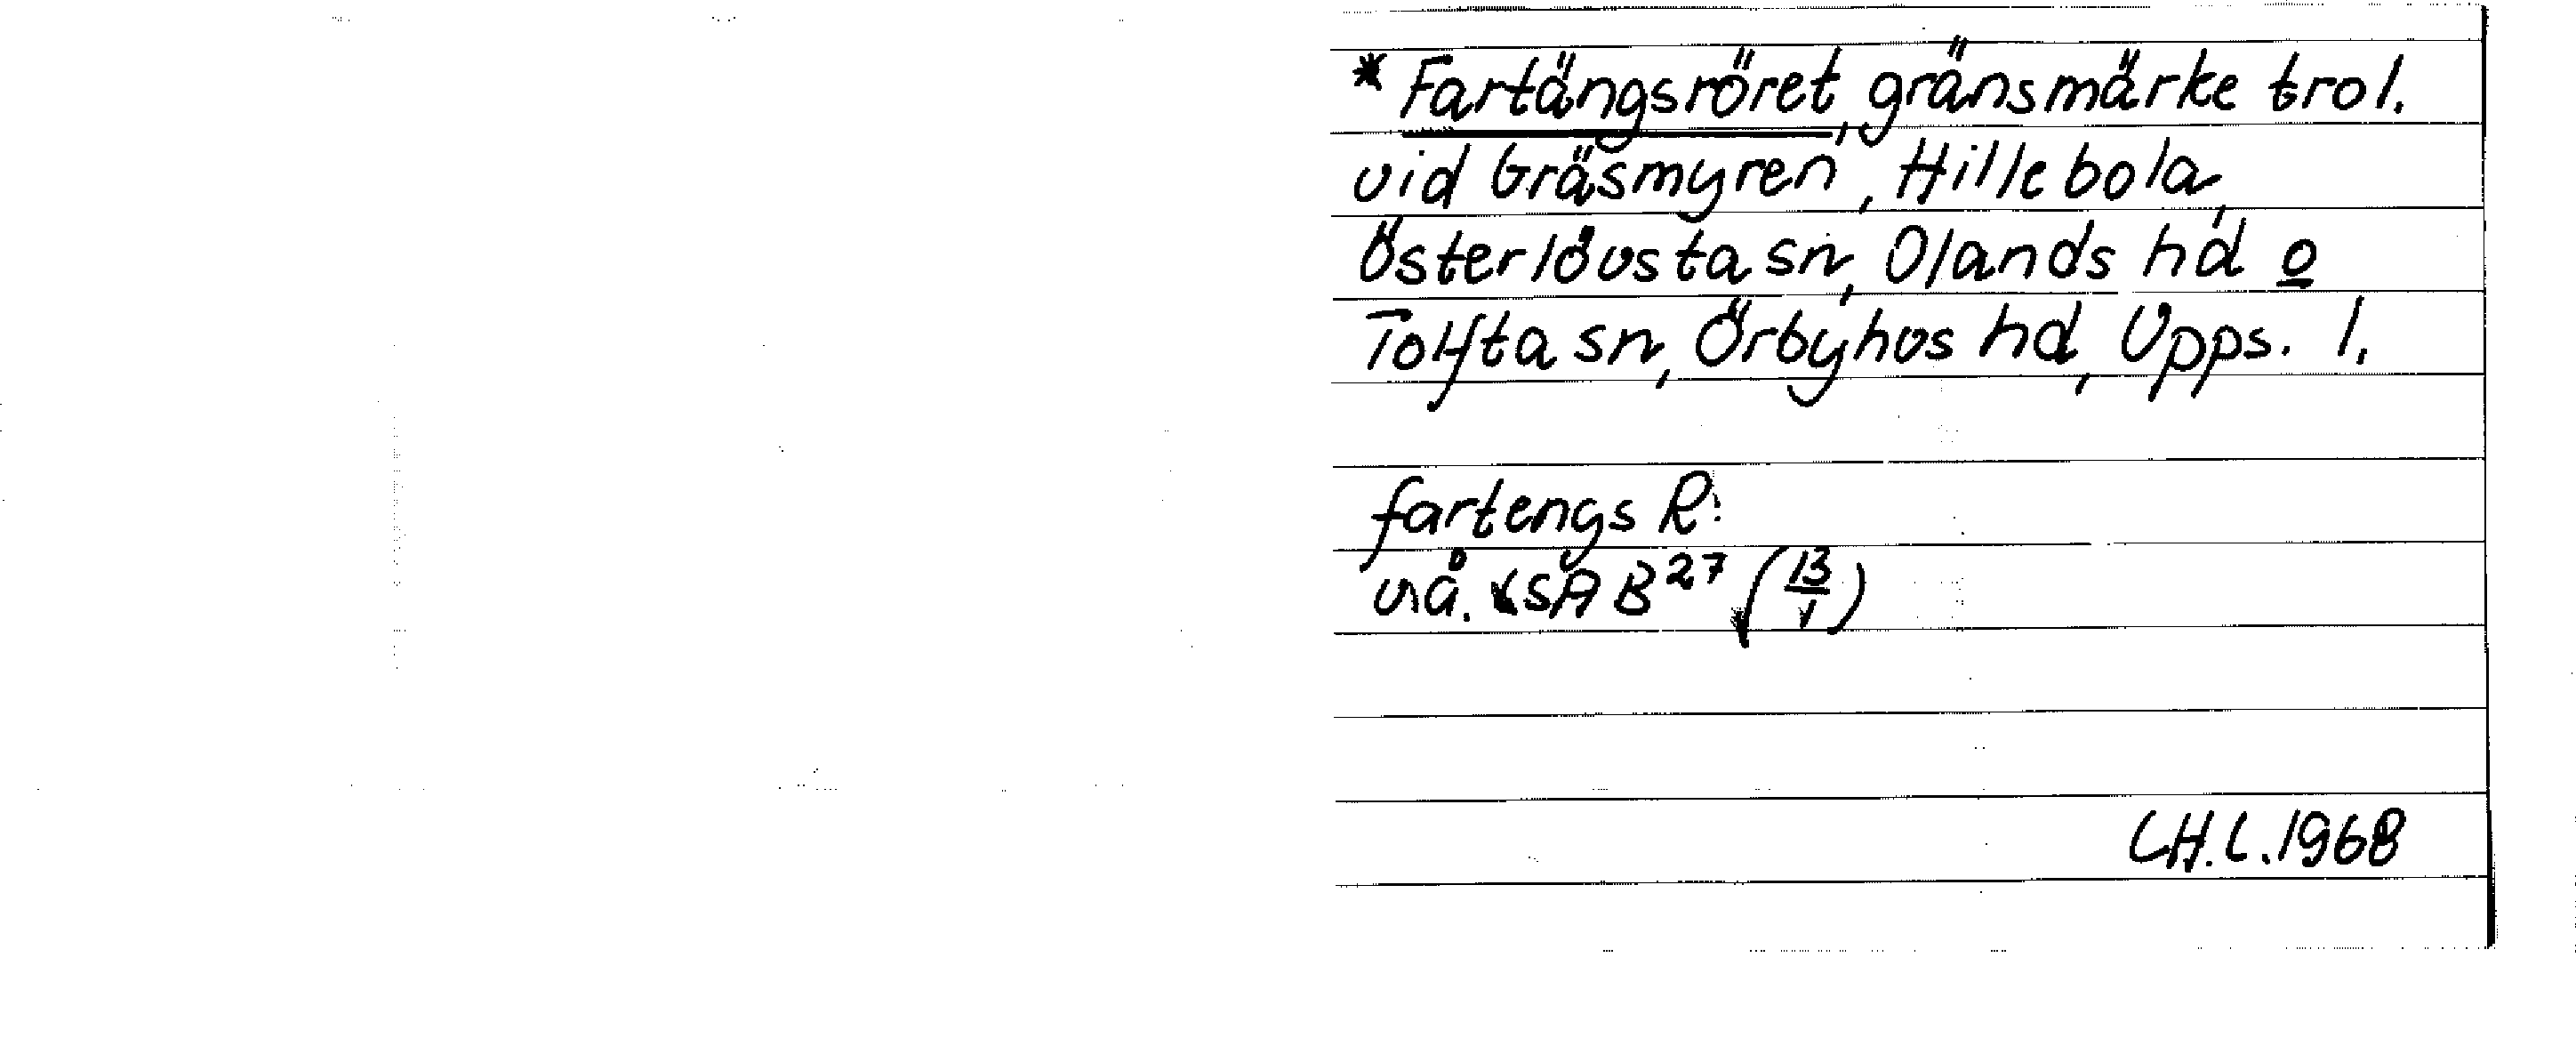 * Fartängsröret, gränsmärke trol.
vid Gräsmyren, Hillebola,
Österlövsta sn, Olands hd o
Tolfta sn, Örbyhus hd, Upps. l.
fartengs R:
uå. LSA B27 (13/1)
CH.L. 1968